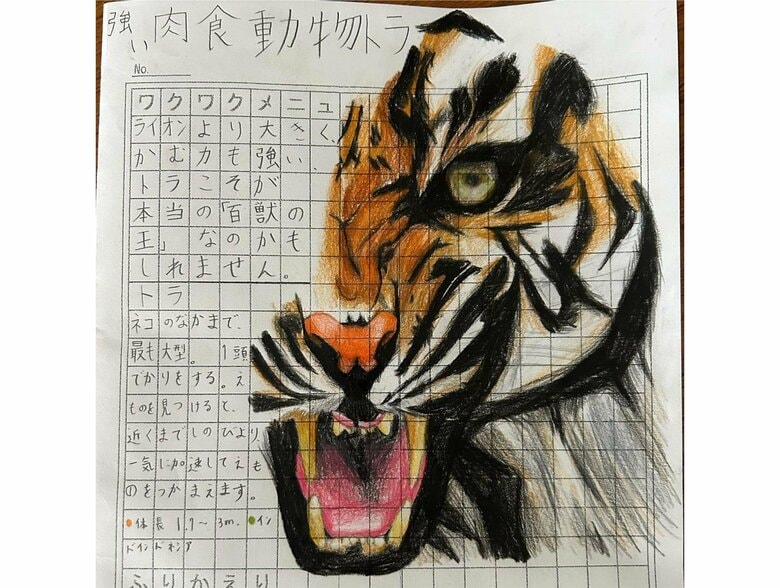 強い肉食動物トラ
No.
ワクワクメニュー
ライオンより大きく、
かむ力も強い、
トラこそが
本当の「百獣の
王」なのかも
しれません。
トラ
ネコのなかまで、
最も大型。1頭
でかりをする。え
ものを見つけると、
近くまでしのびより
一気に加速してえも
のをつかまえます。
体長1.7～3m.インド
インドネシア
ふりかえり